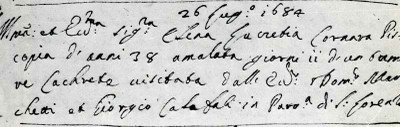 26 lug.º 1684
Ill.ma et Ecc.ma sig.ra Elena Lucretia Cornara Pis
copia d'anni 38 amalata giorni ii d'un
ve Cachrete visitata dalli Ecc.i
chetti et Giorgio Calafati in Pavo.a di s. Lorenzo